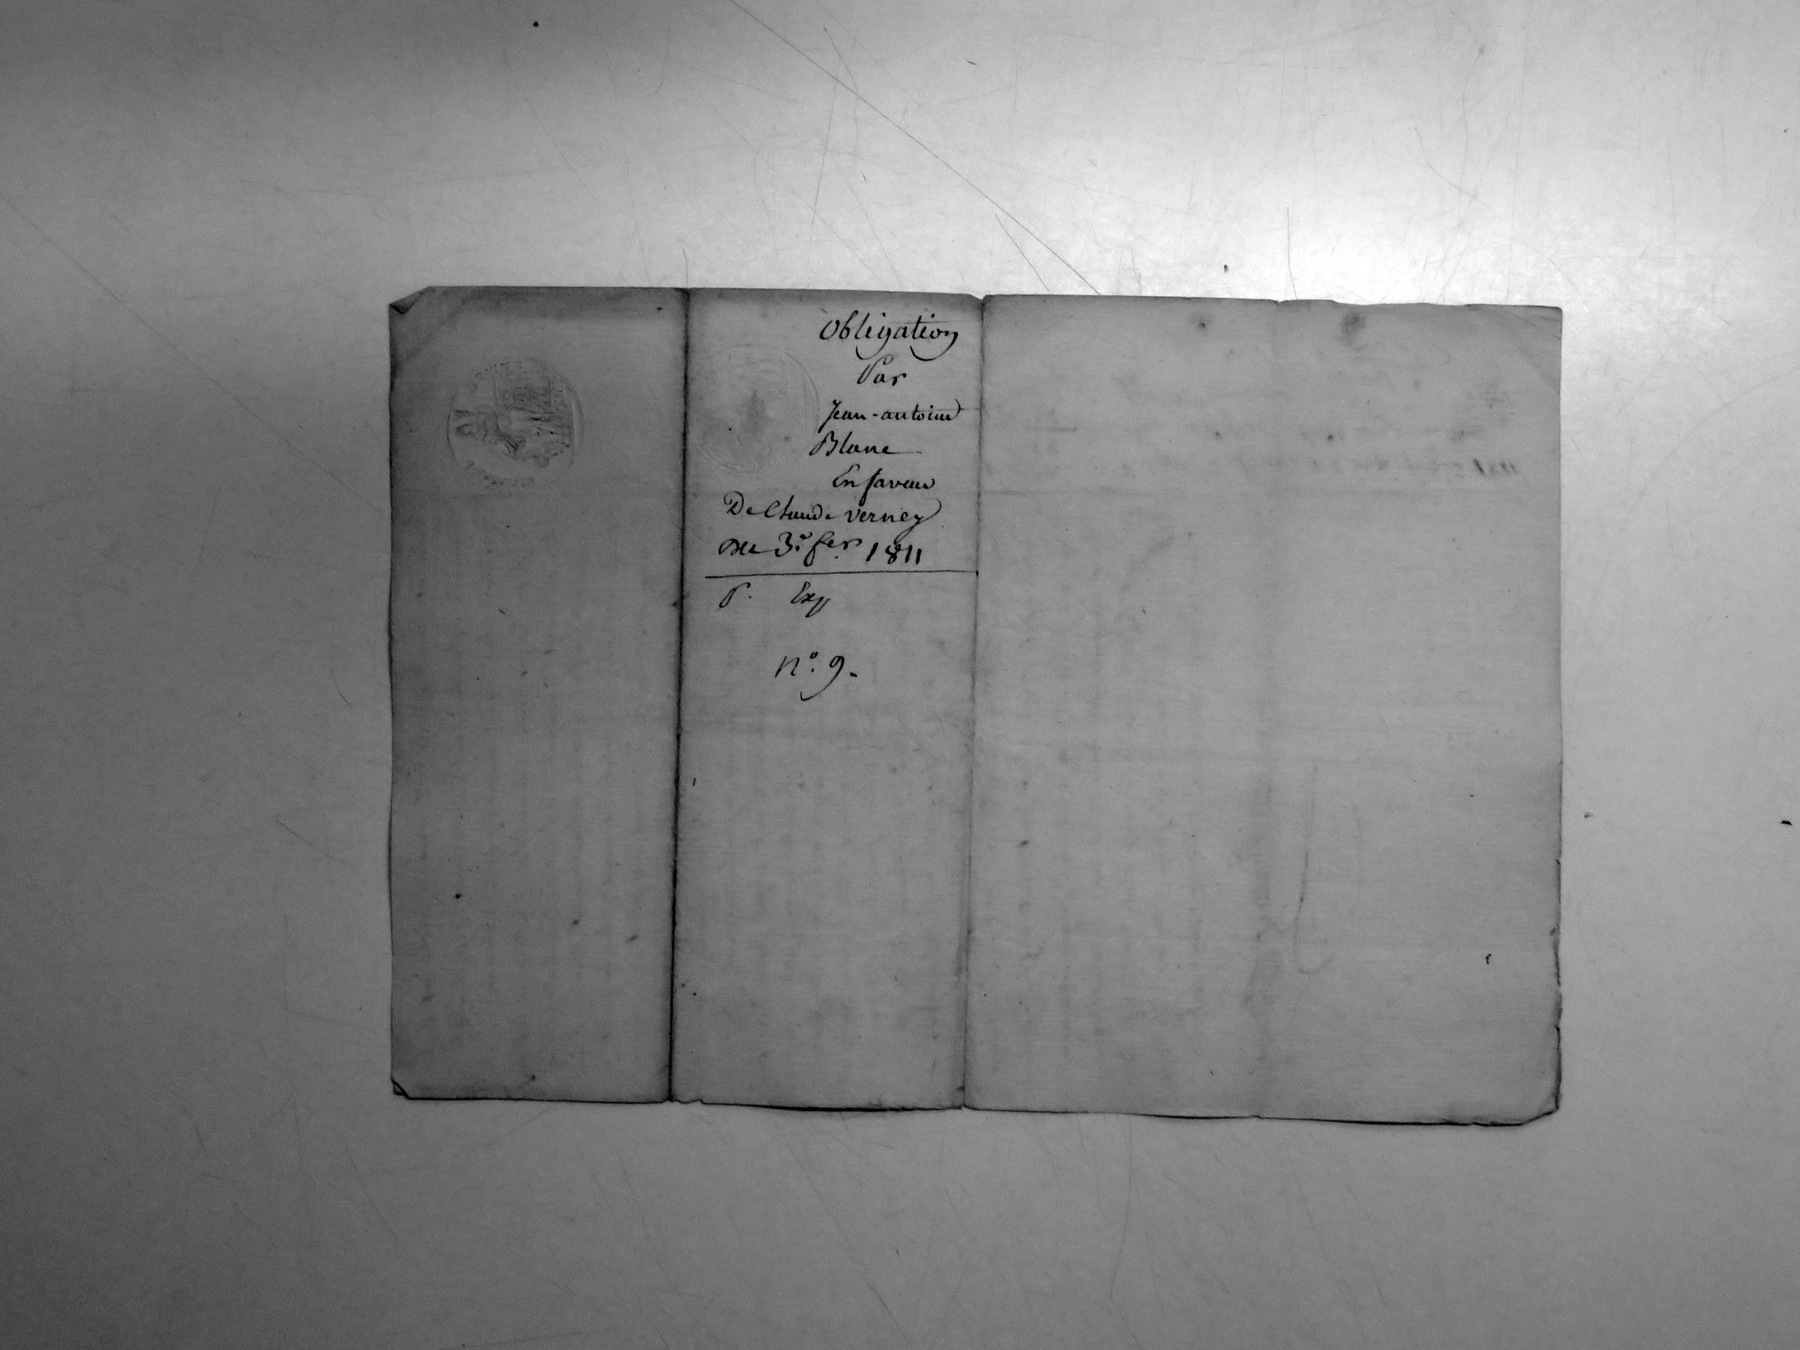 Obligation
Par
Jean-antoine
Blanc
En faveur
De Claude Verney
Du 3.e fer. 1811
P. Exp
n.o 9.